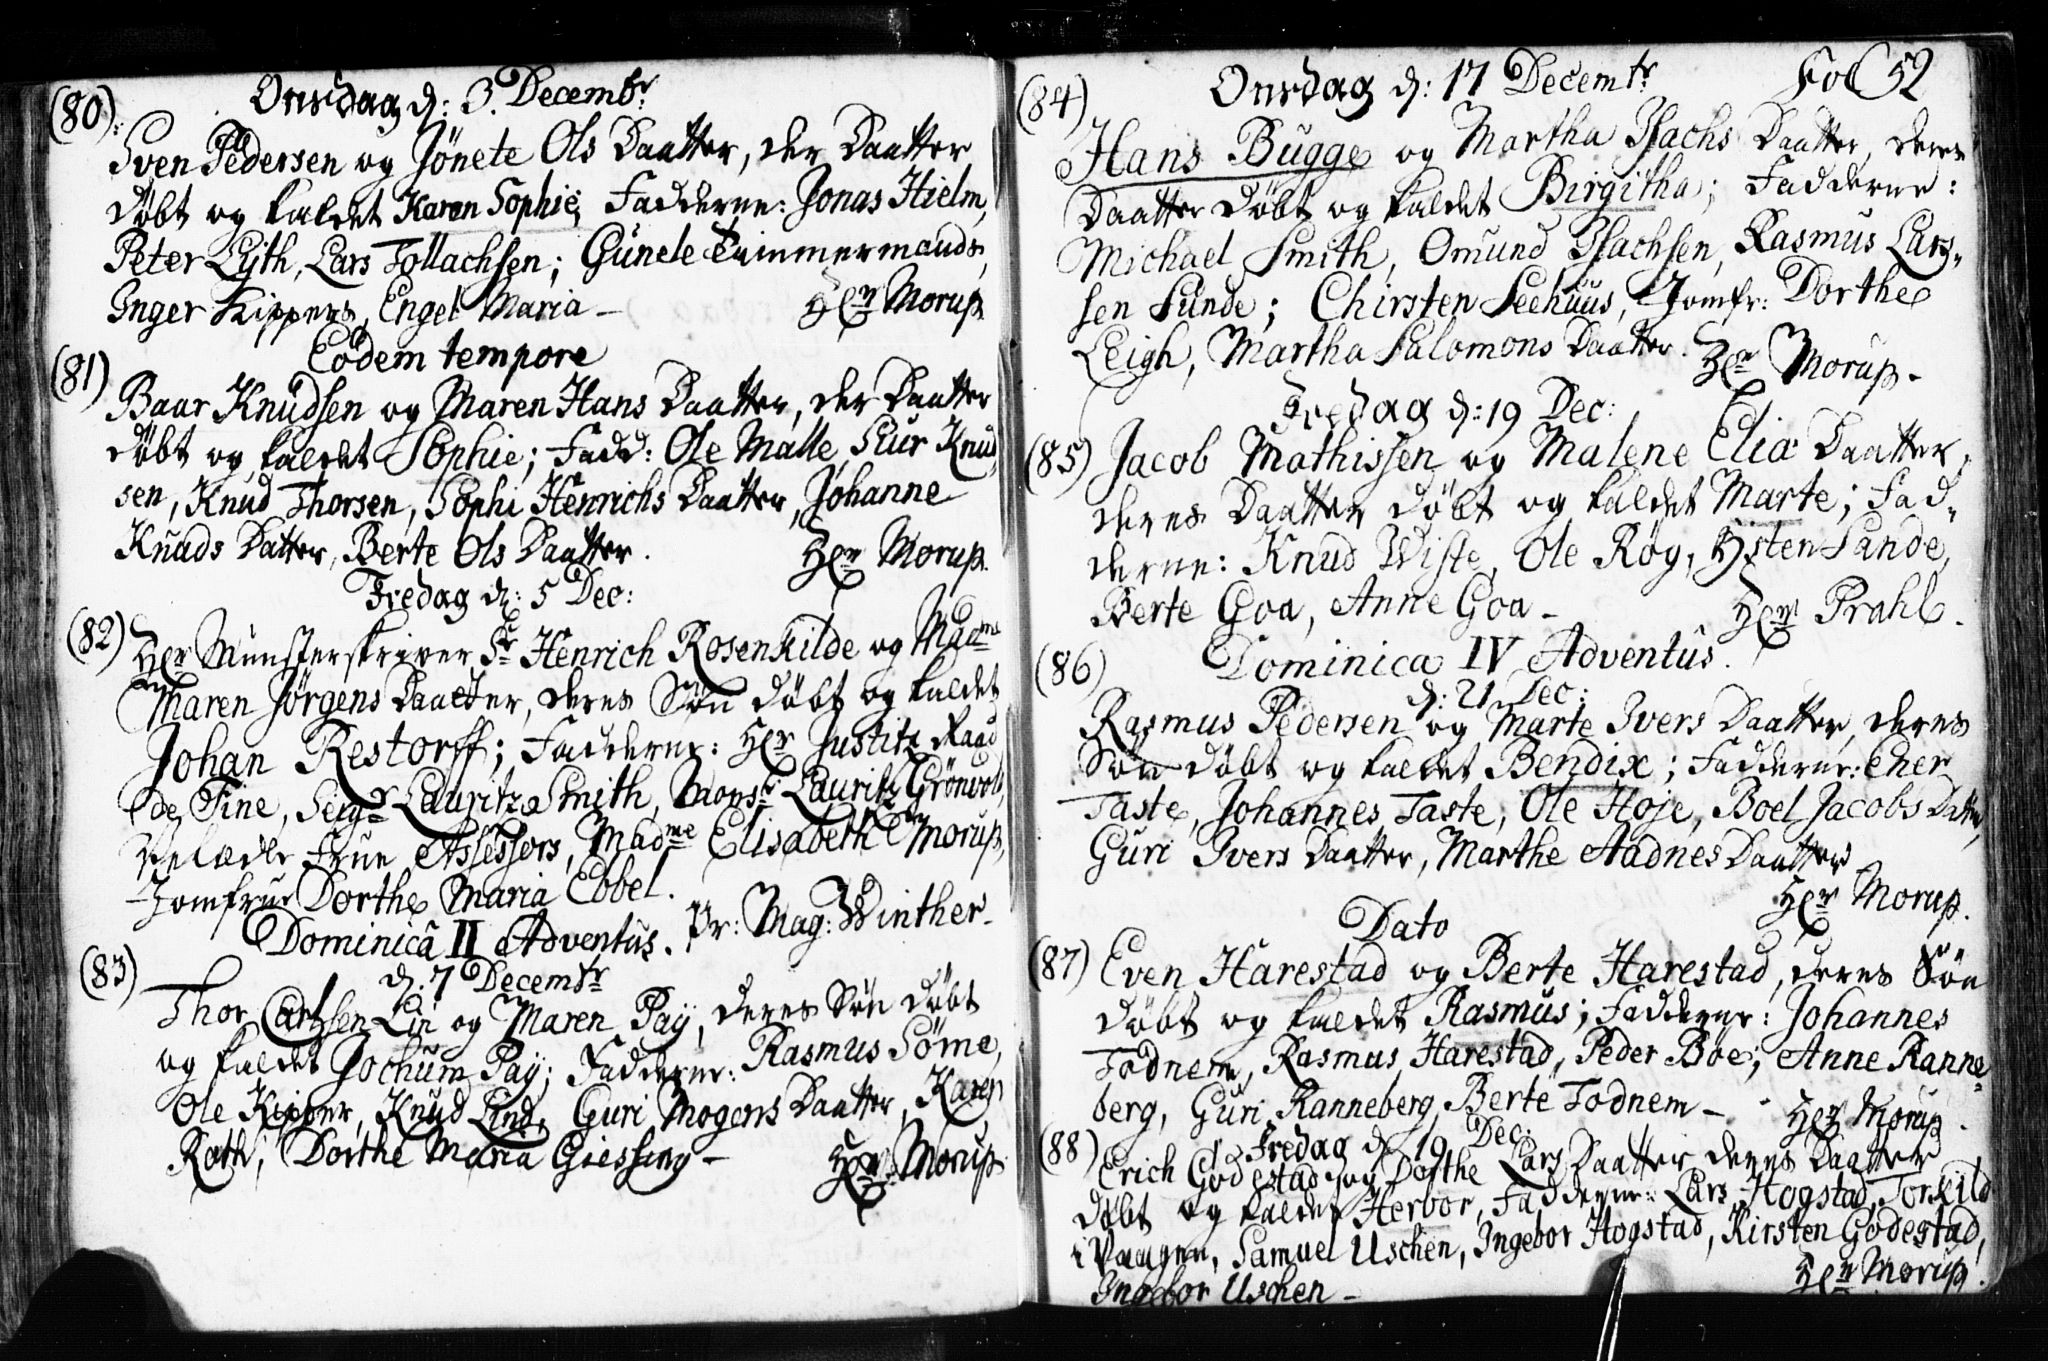 (80) Onsdag d: 3. Decembr
Sven Pedersen og Jönete Ols Daatter, der Daatter
döbt og kaldet Karen Sophie; Fadderne: Jonas Hielm,
Peter Lyth, Lars Tollachsen; Gunele Timmermands,
Inger Kippers, Engel Maria – Hr Morup
Eodem tempore
(81) Baar Knudsen og Maren Hans Daatter, der Daatter
döbt og kaldet Sophie; Fadd: Ole Malle, Siur Knud
sen, Knud Thorsen, Sophi Henrichs Daatter, Johanne
Knuds Datter, Berte Ols Daatter. Hr Morup.
Fredag d: 5 Dec:
(82) Hr Munsterskriver Sr Henrich Rosenkilde og Madme
Maren Jörgens Daatter, deres Sön döbt og kaldet
Johan Restorff; Fadderne: Hr Justitz Raad
de Fine, Seigr Lauritz Smith, Monsr Lauritz Grönvold,
Velædle Frue Assessors, Madme Elisabeth Morup,
Jomfrue Dorthe Maria Ebbel.
Pr: Mag: Winther
Dominicâ II Adventûs.
d. 7 Decembr
(83) Thor Carlsen Lin og Maren Paÿ, deres Sön döbt
og kaldet Jochum Paÿ; Fadderne: Rasmus Söme,
Ole Kipper, Knud Lind, Guri Mogens Daatter, Karen
Roth, Dorthe Maria Giessing – Hr Morup
Fol 52
(84) Onsdag d: 17 Decembr
Hans Bugge og Martha Isachs Daatter, deres
Daatter döbt og kaldet Birgitha; Fadderne:
Michael Smith, Omund Isachsen, Rasmus Lars-
sen Sunde; Chirsten Seehuus, Jomfr: Dorthe
Leigh, Martha Salomons Daatter. Hr Morup.
Fredag d: 19 Dec:
(85) Jacob Mathissen og Malene Eliæ Daatter,
deres Daatter döbt og kaldet Marte; Fad-
derne: Knud Wiste, Ole Røg, Ysten Sande,
Berte Goa, Anne Goa – Hr Prahl.
(86) Dominica IV Adventûs.
d: 21 Dec:
Rasmus Pedersen og Marte Ivers Daatter, deres
Sön döbt og kaldet Bendix; Fadderne: Eher
Taste, Johannes Taste, Ole Hoje, Boel Jacobs Datter,
Guri Ivers Daatter, Marthe Aadnes Daatter
Hr Morup.
Dato
(87) Even Harestad og Berte Harestad, deres Sön
döbt og kaldet Rasmus; Fadderne: Johannes
Todnem, Rasmus Harestad, Peder Böe; Anne Ranne-
berg, Guri Ranneberg, Berte Todnem – Hr Morup.
Fredag d 19 Dec:
(88) Erich Godestad og Dorthe Lars Daatter deres Daatter
döbt og kaldet Herbor, Fadderne: Lars Hogstad, Torkild
Vaagen, Samuel Uschen, Ingebor Hogstad, Kirsten Godestad,
Ingebor Uschen – Hr Morup.